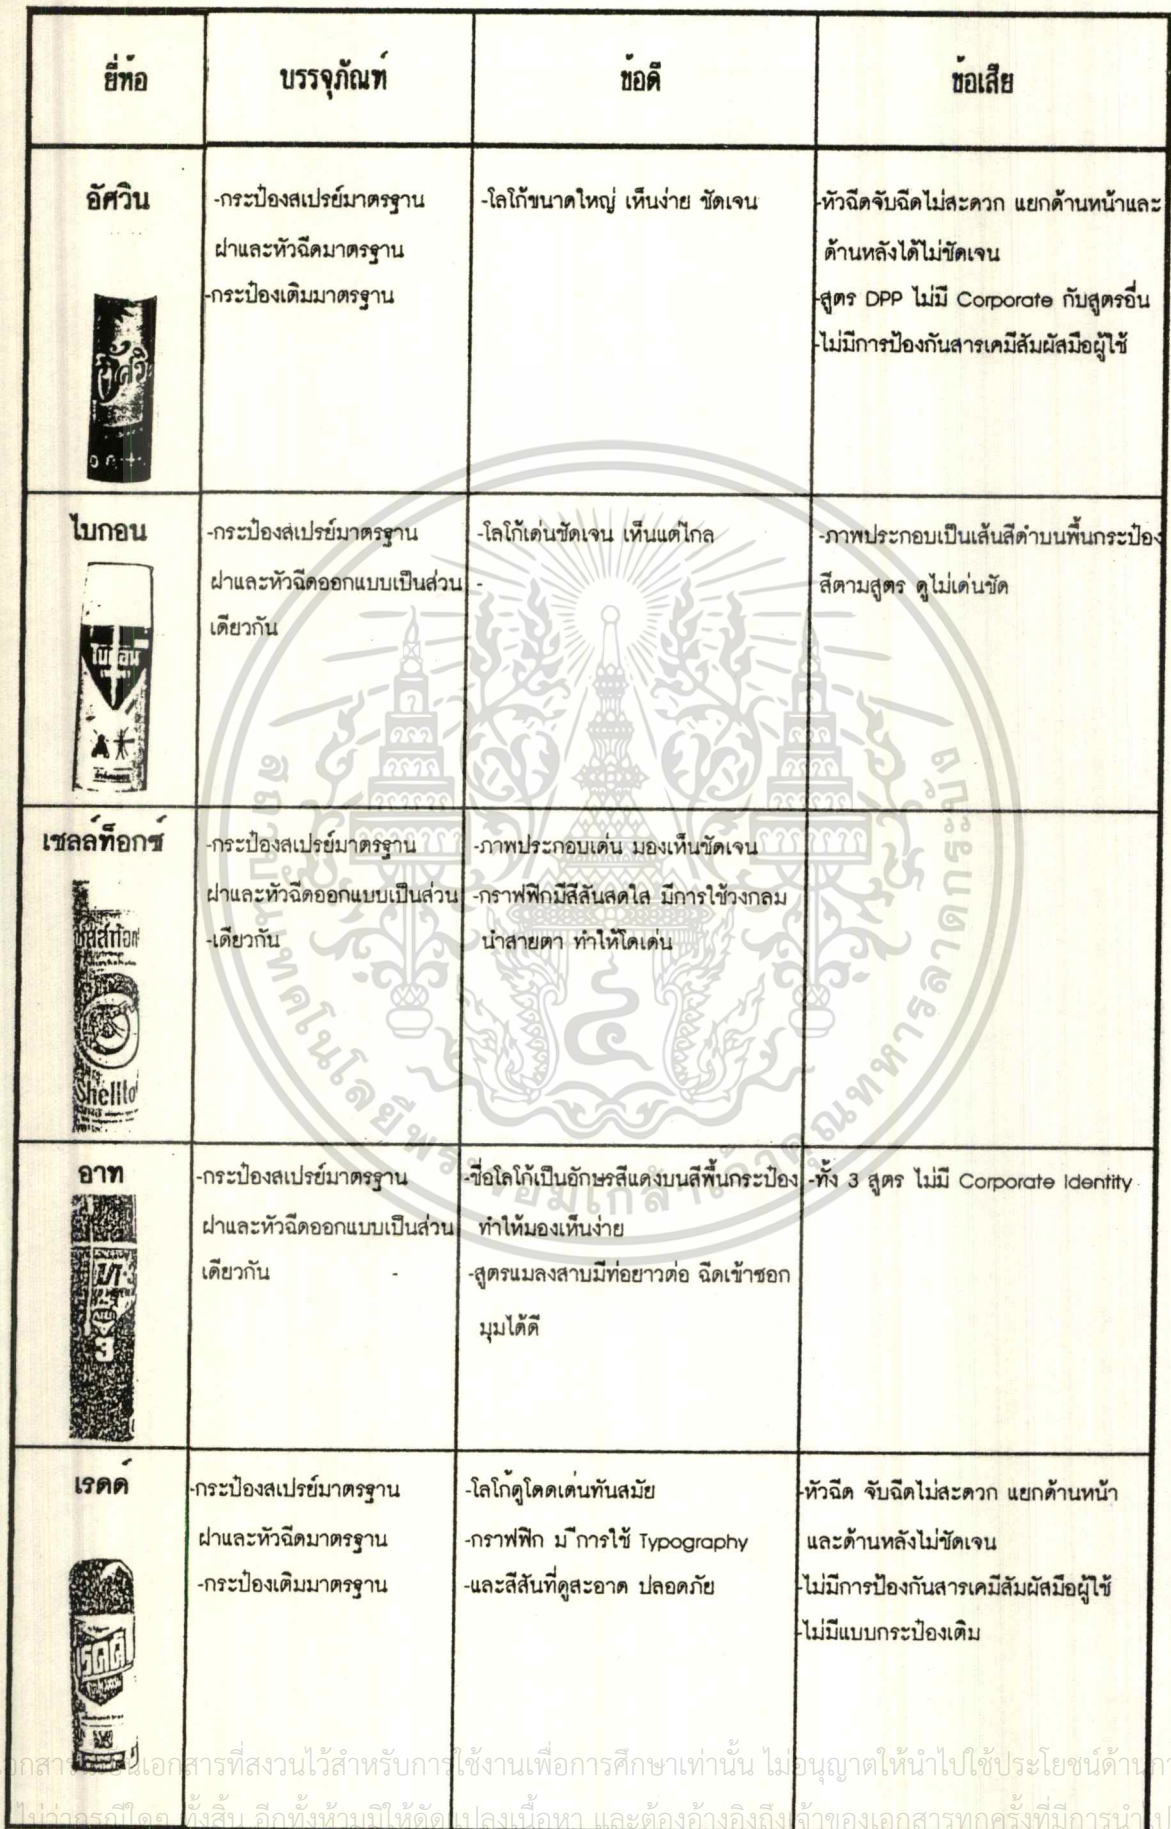 ยี่ห้อ บรรจุภัณฑ์ ข้อดี ข้อเสีย
อัศวิน
-กระป๋องสเปรย์มาตรฐาน
ฝาและหัวฉีดมาตรฐาน
-กระป๋องเติมมาตรฐาน
-โลโก้ขนาดใหญ่ เห็นง่าย ชัดเจน
-หัวฉีดจับฉีดไม่สะดวก แยกด้านหน้าและ
ด้านหลังได้ไม่ชัดเจน
-สูตร DPP ไม่มี Corporate กับสูตรอื่น
-ไม่มีการป้องกันสารเคมีสัมผัสมือผู้ใช้
ไบกอน
-กระป๋องสเปรย์มาตรฐาน
ฝาและหัวฉีดออกแบบเป็นส่วน
เดียวกัน
-โลโก้เด่นชัดเจน เห็นแต่ไกล
-
-ภาพประกอบเป็นเส้นสีดำบนพื้นกระป๋อง
สีตามสูตร ดูไม่เด่นชัด
ไบกอน
เชลล์ท็อกซ์
-กระป๋องสเปรย์มาตรฐาน
ฝาและหัวฉีดออกแบบเป็นส่วน
-เดียวกัน
-ภาพประกอบเด่น มองเห็นชัดเจน
-กราฟฟิกมีสีสันสดใส มีการใช้วงกลม
นำสายตา ทำให้โดเด่น
Shellto
อาท
-กระป๋องสเปรย์มาตรฐาน
ฝาและหัวฉีดออกแบบเป็นส่วน
เดียวกัน -
-ชื่อโลโก้เป็นอักษรสีแดงบนสีพื้นกระป๋อง
ทำให้มองเห็นง่าย
-สูตรแมลงสาบมีท่อยาวต่อ ฉีดเข้าซอก
มุมได้ดี
-ทั้ง 3 สูตร ไม่มี Corporate Identity
3
เรดด์
-กระป๋องสเปรย์มาตรฐาน
ฝาและหัวฉีดมาตรฐาน
-กระป๋องเติมมาตรฐาน
-โลโก้ดูโดดเด่นทันสมัย
-กราฟฟิก มีการใช้ Typography
-และสีสันที่ดูสะอาด ปลอดภัย
-หัวฉีด จับฉีดไม่สะดวก แยกด้านหน้า
และด้านหลังไม่ชัดเจน
-ไม่มีการป้องกันสารเคมีสัมผัสมือผู้ใช้
-ไม่มีแบบกระป๋องเติม
เรดด์
สถาบันเทคโนโลยีพระจอมเกล้าเจ้าคุณทหารลาดกระบัง
เอกสารที่สงวนไว้สำหรับการใช้งานเพื่อการศึกษาเท่านั้น ไม่อนุญาตให้นำไปใช้ประโยชน์ด้าน
ไม่ว่ากรณีใดๆ ทั้งสิ้น อีกทั้งห้ามมิให้ดัดแปลงเนื้อหา และต้องอ้างอิงถึงเจ้าของเอกสารทุกครั้งที่มีการนำไป